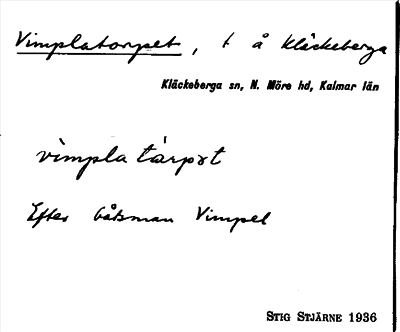 Vimplatorpet, t å Kläckeberga
Kläckeberga sn, N. Möre hd, Kalmar län
vìmpla tàrpət
Efter båtsman Vimpel
STIG STJÄRNE 1936